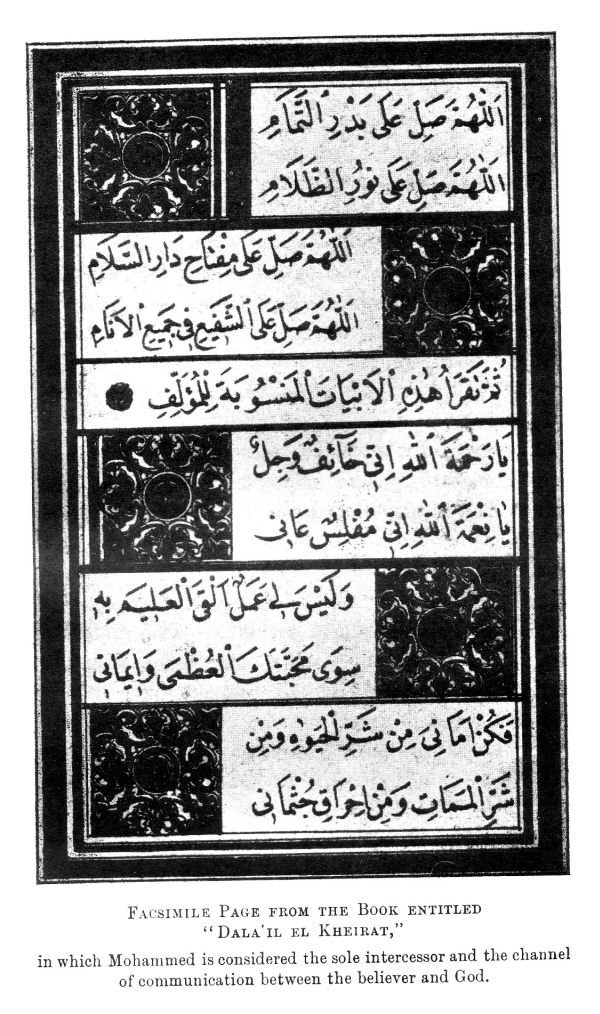 اَللّٰهُمَّ صَلِّ عَلَى بَدْرِ التَّمَامِ
اَللّٰهُمَّ صَلِّ عَلَى نُورِ الظَّلَامِ
اَللّٰهُمَّ صَلِّ عَلَى مِفْتَاحِ دَارِ السَّلَامِ
اَللّٰهُمَّ صَلِّ عَلَى الشَّفِيعِ فِي جَمِيعِ الْاَنَامِ
ثُمَّ تَقْرَأُ هٰذِهِ الْاَبْيَاتَ الْمَنْسُوبَةَ لِلْمُؤَلِّفِ
يَا رَحْمَةَ اللّٰهِ اِنِّي خَآئِفٌ وَجِلٌ
يَا نِعْمَةَ اللّٰهِ اِنِّي مُفْلِسٌ عَانِي
وَلَيْسَ لِي عَمَلٌ اَلْقَى الْعَلِيمَ بِهِ
سِوَى مَحَبَّتِكَ الْعُظْمَى وَاِيمَانِي
فَكُنْ اَمَانِيَ مِنْ شَرِّ الْحَيٰوةِ وَمِنْ
شَرِّ الْمَمَاتِ وَمِنْ اِحْرَاقِ جُثْمَانِي
FACSIMILE PAGE FROM THE BOOK ENTITLED
"DALA'IL EL KHEIRAT,"
in which Mohammed is considered the sole intercessor and the channel
of communication between the believer and God.